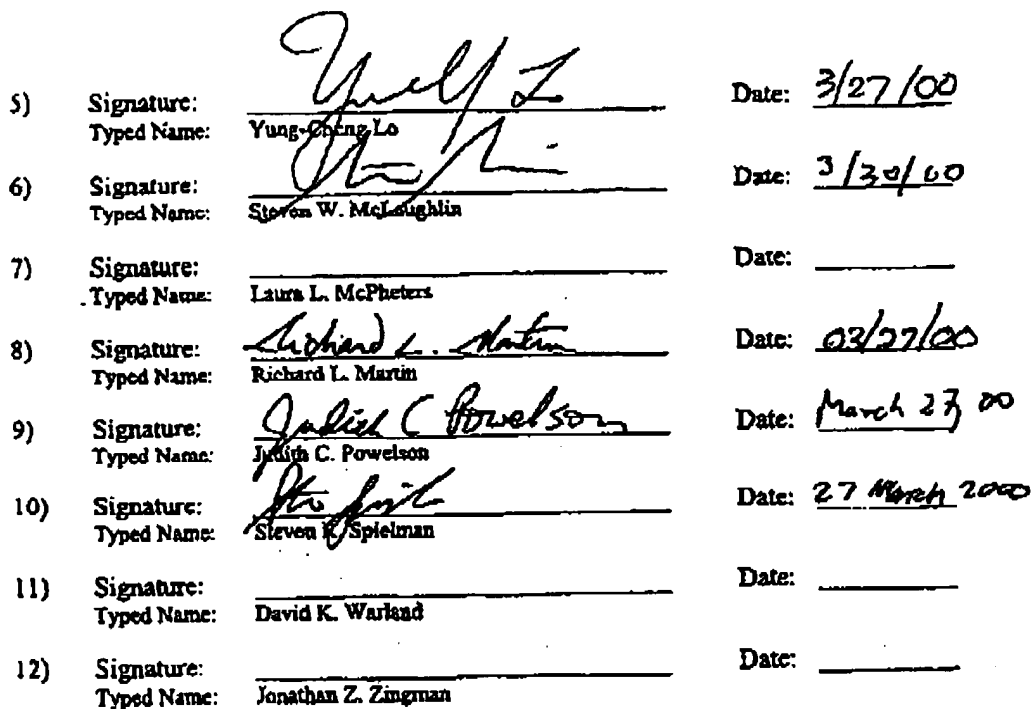 5) Signature: Date: 3/27/00
Typed Name: Yung-Cheng Lo
6) Signature: Date: 3/30/00
Typed Name: Steven W. McLaughlin
7) Signature: Date:
Typed Name: Laura L. McPheters
8) Signature: Richard L. Martin Date: 03/27/00
Typed Name: Richard L. Martin
9) Signature: Judith C Powelson Date: March 27, 00
Typed Name: Judith C. Powelson
10) Signature: Date: 27 March 2000
Typed Name: Steven R. Spielman
11) Signature: Date:
Typed Name: David K. Warland
12) Signature: Date:
Typed Name: Jonathan Z. Zingman